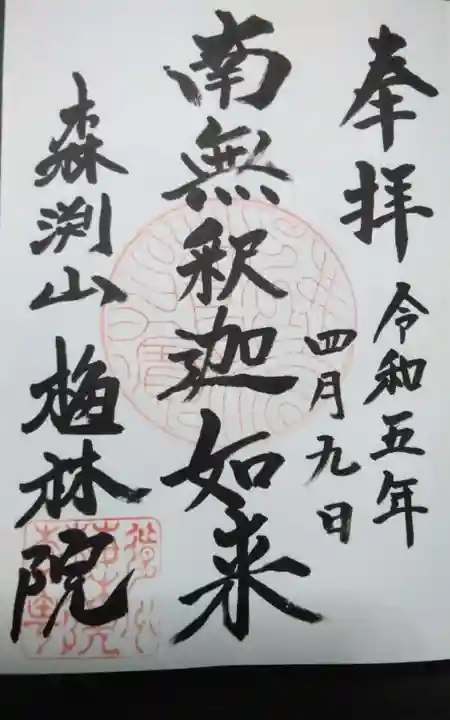 奉拝
令和五年
四月九日
南無釈迦如来
森渕山 梅林院